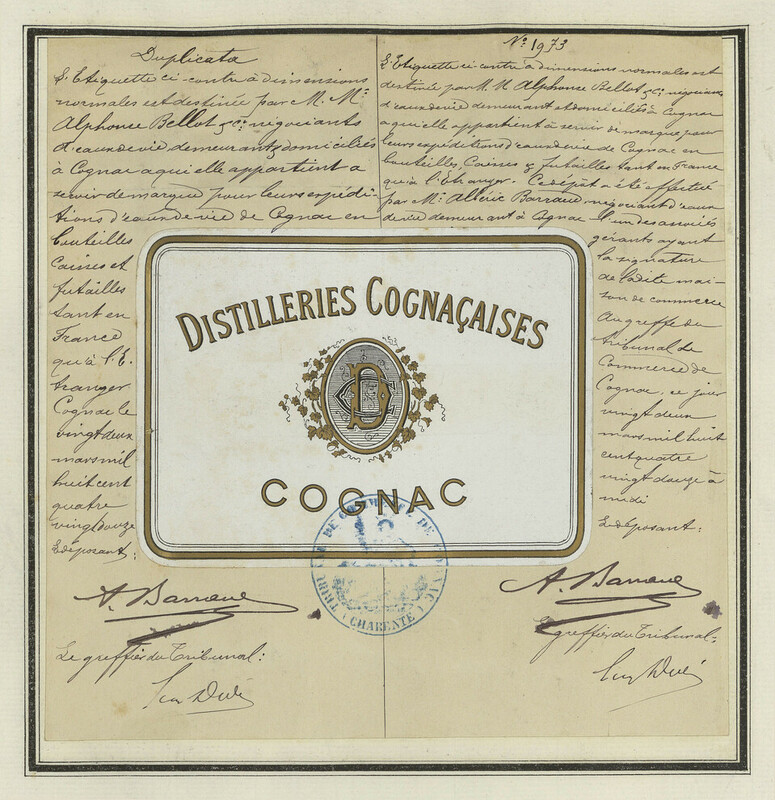 Duplicata
L'Etiquette ci-contre à dimensions
normales est destinée par M. Mrs
Alphonse Bellot & Cie négociants
d'eaux de vie demeurants & domiciliés
à Cognac a qui elle appartient a
servir de marque pour leurs expédi-
tions d'eaux de vie de Cognac en
bouteilles
Caisses et
futailles
tant en
France
qu'à l'E-
tranger.
Cognac le
vingt deux
mars mil
huit cent
quatre
vingt douze
Le déposant:
A. Barraud
Le greffier du Tribunal:
Nº 1973
L'Etiquette ci-contre à dimensions normales est
destinée par M. M. Alphonse Bellot & Cie négocians
d'eaux de vie demeurant et domiciliés à Cognac
a qui elle appartient à servir de marque pour
leurs expéditions d'eaux de vie de Cognac en
bouteilles, Caisses & futailles tant en France
qu'à l'Etranger. Ce dépôt a été effectué
par Mr Albéric Barraud négociant d'eaux
de vie demeurant à Cognac l'un des associés
gérants ayant
la signature
de ladite mai-
son de commerce
Au greffe du
tribunal de
Commerce de
Cognac, ce jour
vingt deux
mars mil huit
cent quatre
vingt douze à
midi
Le déposant:
A. Barraud
Le greffier du Tribunal:
DISTILLERIES COGNAÇAISES
COGNAC
TRIBUNAL DE COMMERCE DE COGNAC
(CHARENTE)